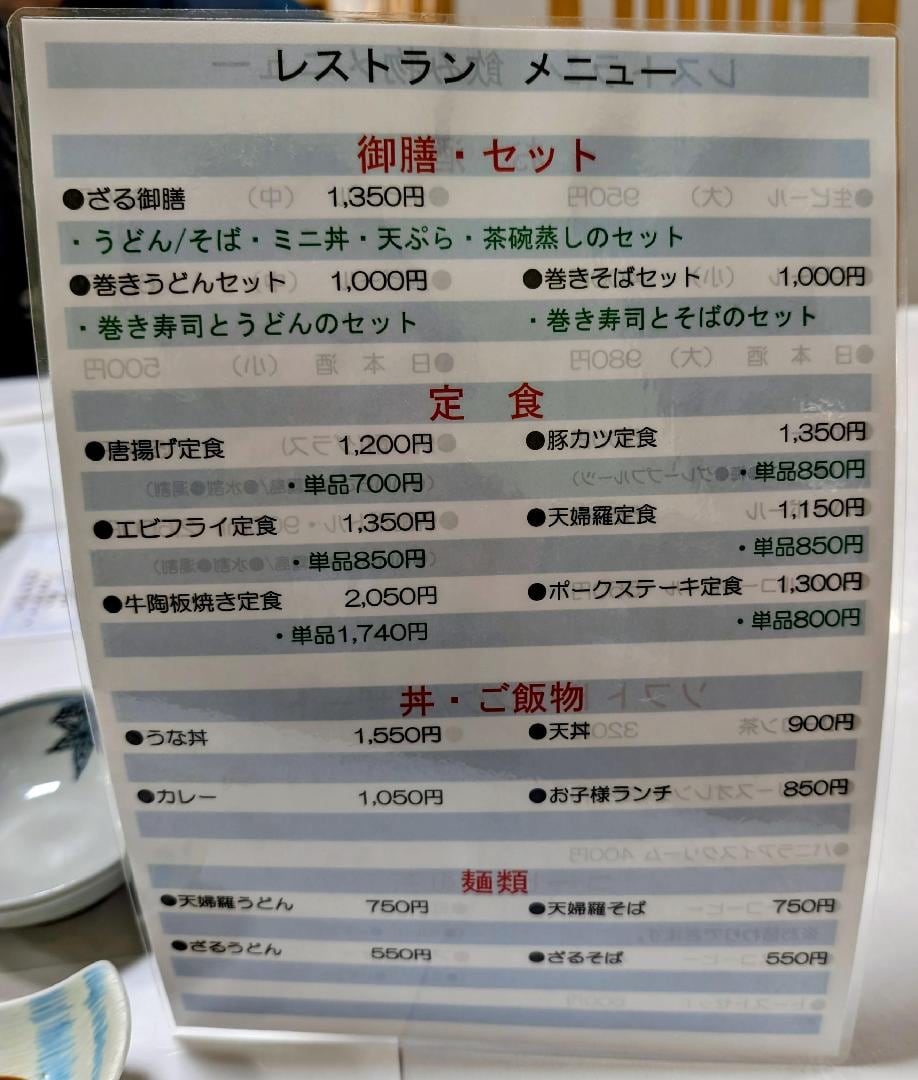 レストラン メニュー
御膳・セット
●ざる御膳 1,350円
・うどん/そば・ミニ丼・天ぷら・茶碗蒸しのセット
●巻きうどんセット 1,000円 ●巻きそばセット 1,000円
・巻き寿司とうどんのセット ・巻き寿司とそばのセット
定 食
●唐揚げ定食 1,200円 ●豚カツ定食 1,350円
・単品700円 ・単品850円
●エビフライ定食 1,350円 ●天婦羅定食 1,150円
・単品850円 ・単品850円
●牛陶板焼き定食 2,050円 ●ポークステーキ定食 1,300円
・単品1,740円 ・単品800円
丼・ご飯物
●うな丼 1,550円 ●天丼 900円
●カレー 1,050円 ●お子様ランチ 850円
麺類
●天婦羅うどん 750円 ●天婦羅そば 750円
●ざるうどん 550円 ●ざるそば 550円